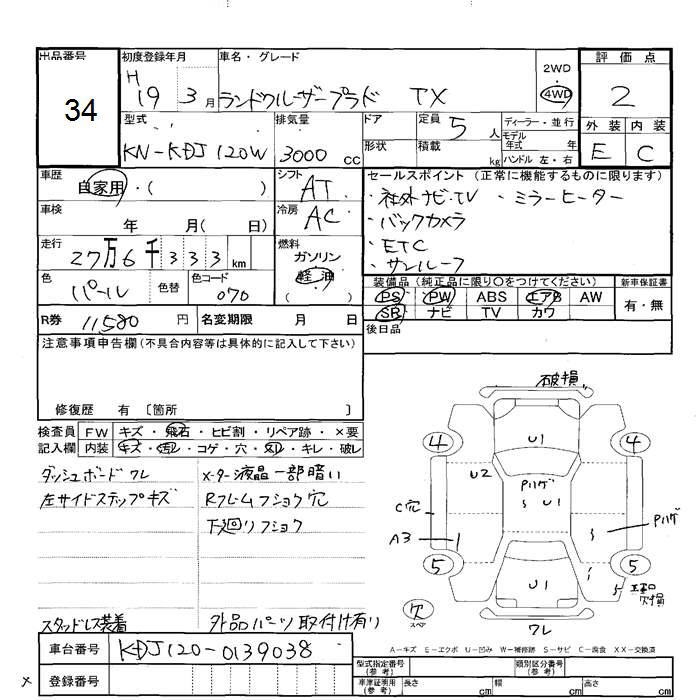 出品番号
34
初度登録年月
H
19 3月
車名・グレード
ランドクルーザープラド TX
2WD
4WD
評価点
2
外装 内装
E C
型式
KN-KDJ120W
排気量
3000 cc
ドア
形状
定員 5 人
積載 kg
ディーラー・並行
モデル
年式 年
ハンドル 左・右
車歴
自家用・( )
シフト
AT
車検
年 月( 日)
冷房
AC
走行
27万6千333 km
燃料
ガソリン
軽油
( )
色
パール
色替
色コード
070
セールスポイント(正常に機能するものに限ります)
・社外ナビ・TV ・ミラーヒーター
・バックカメラ
・ETC
・サンルーフ
装備品(純正品に限り〇をつけてください)
新車保証書
PS PW ABS エアB AW
SR ナビ TV カワ
有・無
R券 11580 円
名変期限 月 日
後日品
注意事項申告欄(不具合内容等は具体的に記入して下さい)
修復歴 有 〔箇所 〕
検査員
記入欄
FW キズ・飛石・ヒビ割・リペア跡・×要
内装 キズ・汚レ・コゲ・穴・切レ・キレ・破レ
ダッシュボードワレ
左サイドステップキズ
スタッドレス装着
メーター液晶一部暗い
Rフレームフショク穴
下廻りフショク
外品パーツ取付け有り
破損
4
4
U1
U2
Pハゲ
S U1
C穴
A3
S
Pハゲ
5
5
U1
S
欠損
穴
スペア
ワレ
A-キズ E-エクボ U-凹み W-補修跡 S-サビ C-腐食 XX-交換済
車台番号
KDJ120-0139038
× 登録番号
型式指定番号
(参考)
類別区分番号
(参考)
車庫証明用
(参考)
長さ cm
幅 cm
高さ cm